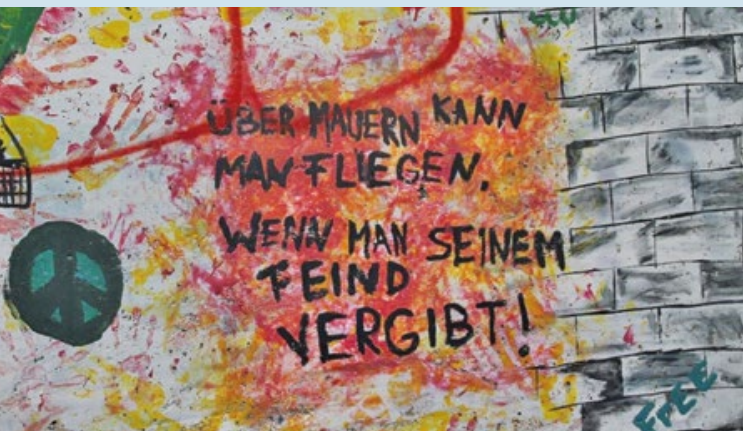 ÜBER MAUERN KANN
MAN FLIEGEN.
WENN MAN SEINEM
FEIND
VERGIBT!
FREE